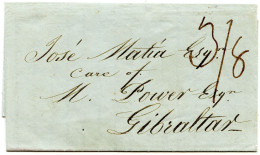 José Matia Esqr
3/8
care of
M. Power Esqr
Gibraltar